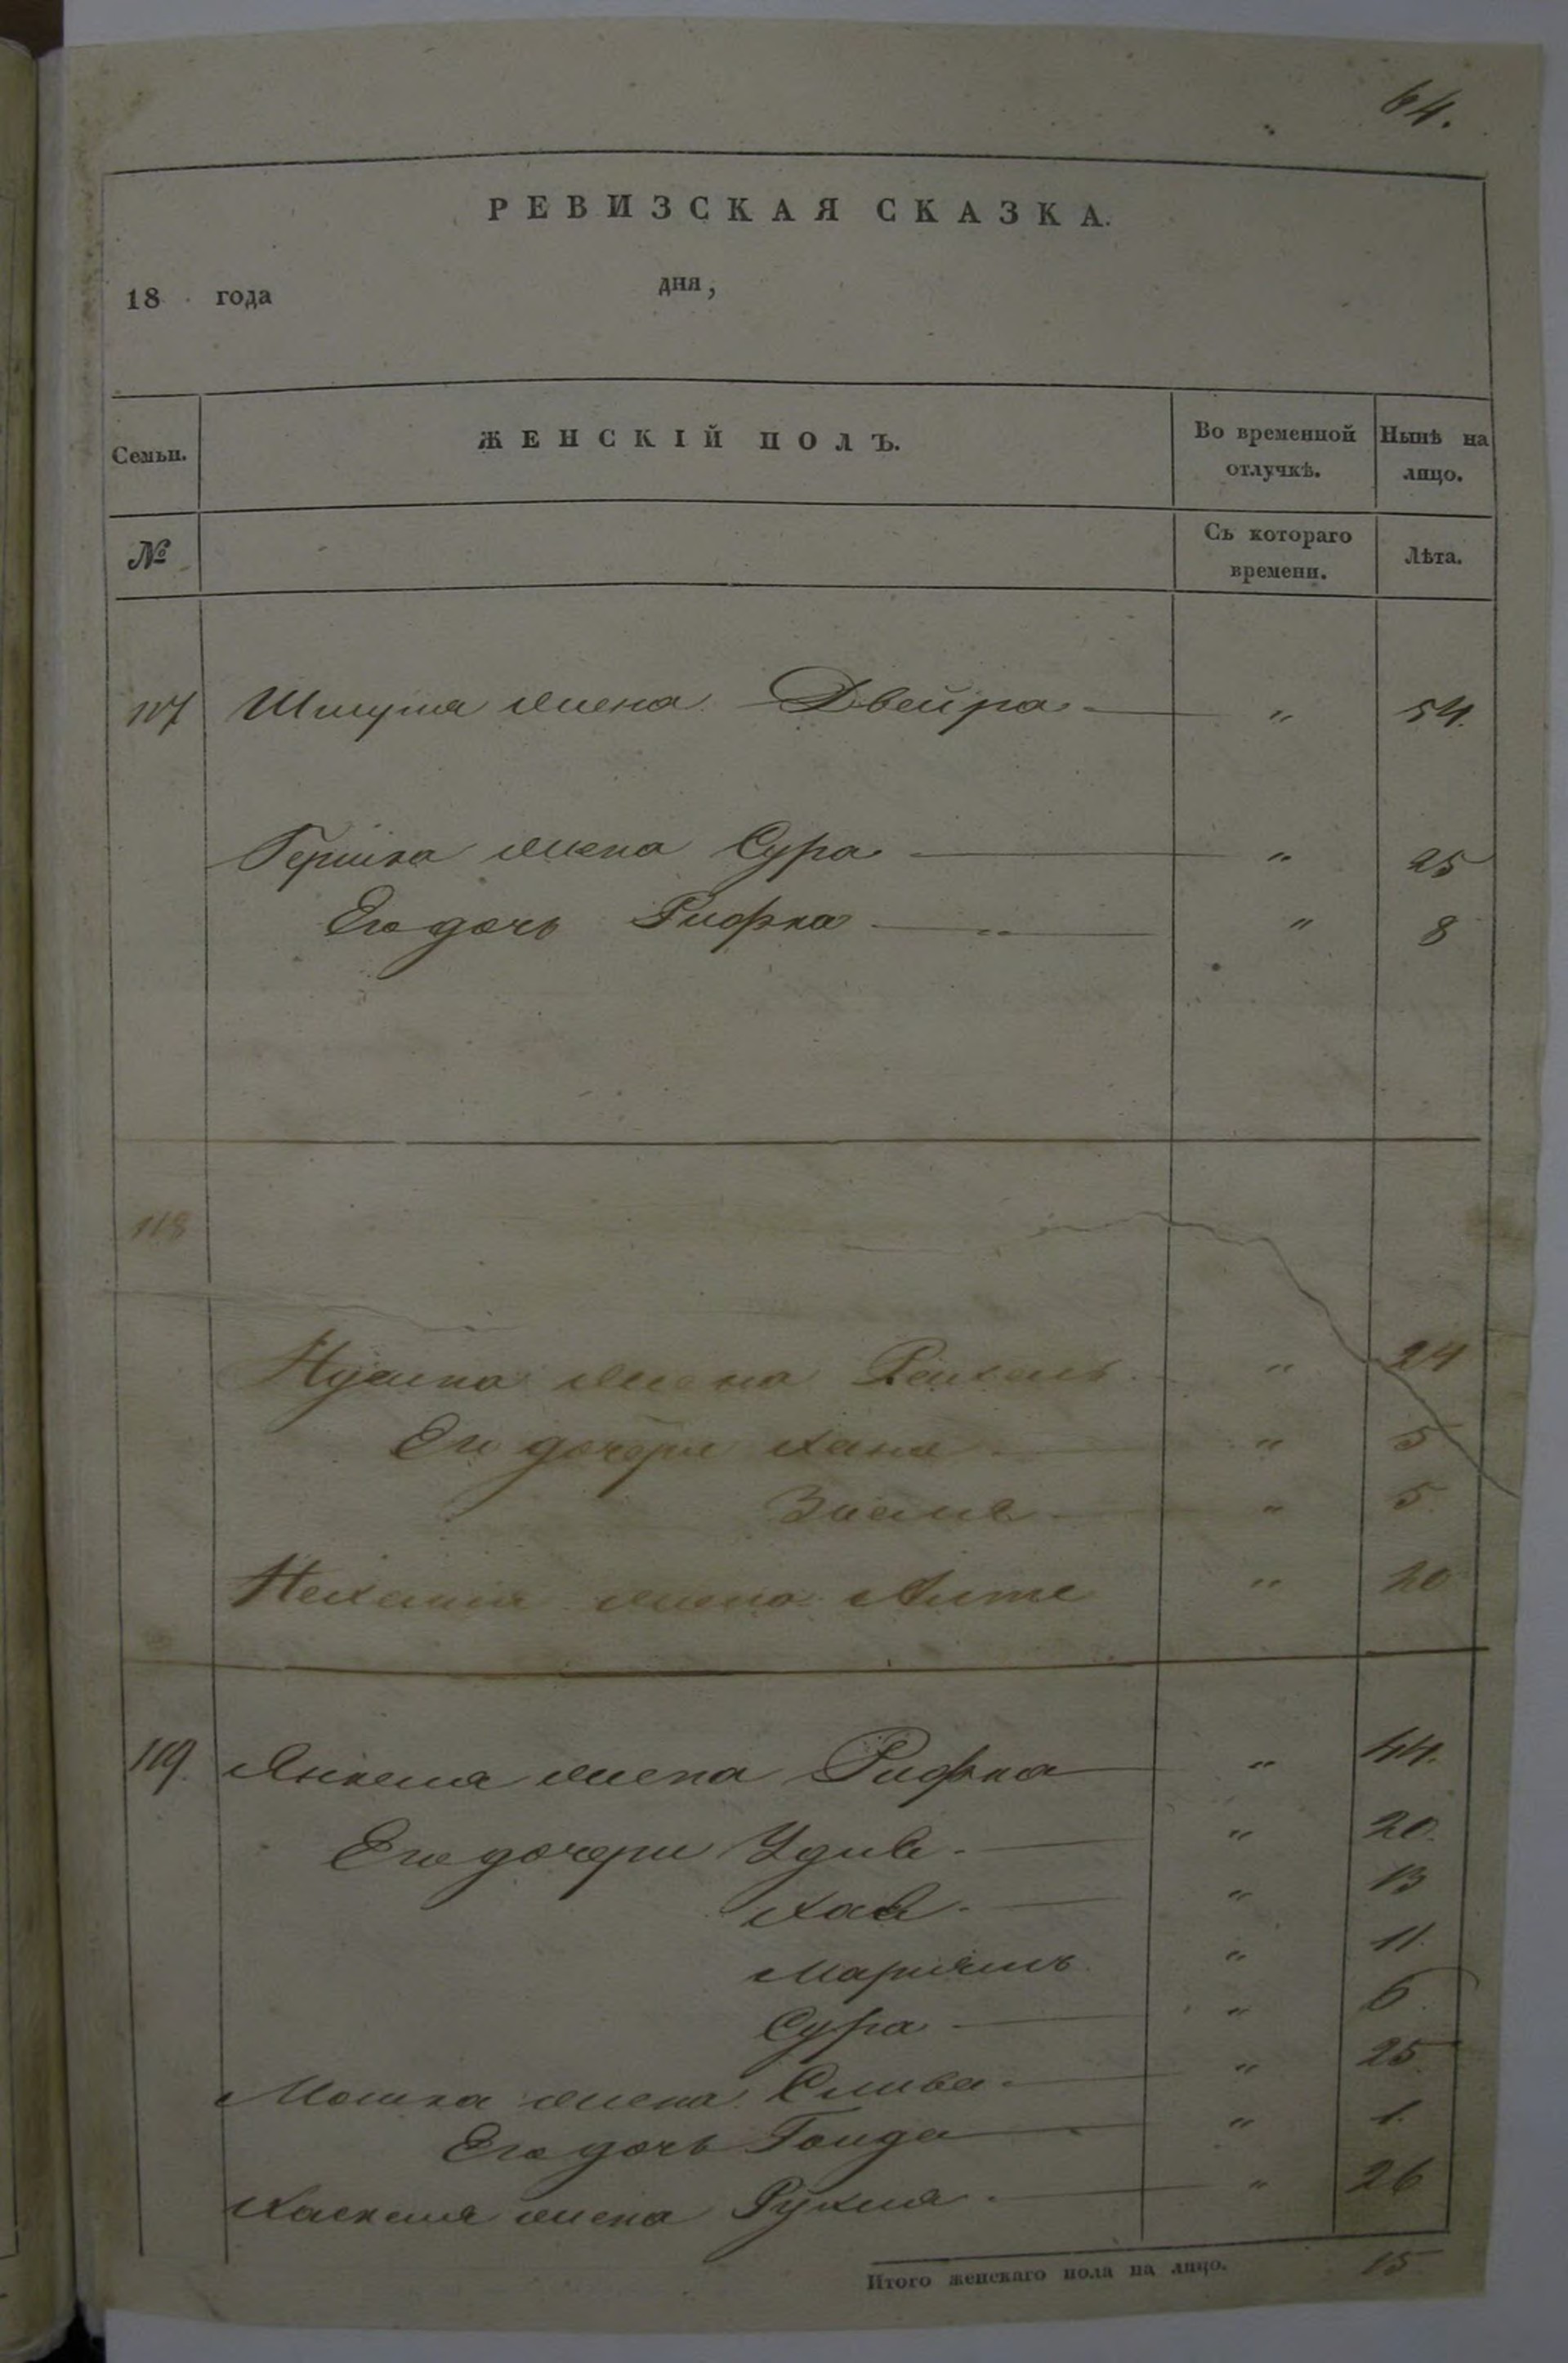 64.
РЕВИЗСКАЯ СКАЗКА.
18 года дня,
Семьи. ЖЕНСКІЙ ПОЛЪ. Во временной отлучкѣ. Нынѣ на лицо.
№ Съ котораго времени. Лѣта.
117 Шмуля жена Двейра " 54.
Гершка жена Сура " 25
Его дочь Рифка " 8
118
жена " 24
Его дочери Хана " 5
" 5
жена " 20
119. Янкеля жена Рифка " 44.
Его дочери " 20.
Хае " 13
Маріямъ " 11.
Сура " 6.
Мошка жена " 25.
Его дочь " 1.
Хаскеля жена " 26
Итого женскаго пола на лицо. 15